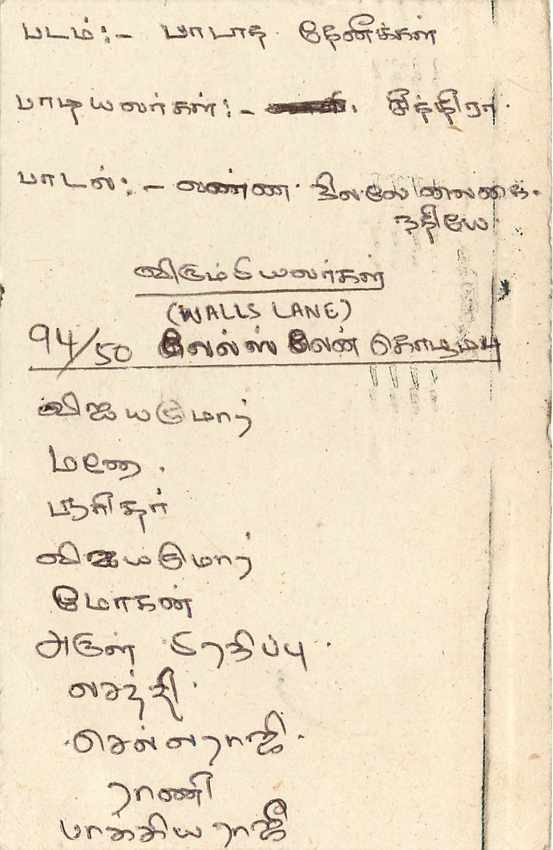 படம்:- பாடாத தேனீக்கள்
பாடியவர்கள்:- சித்திரா.
பாடல்:- வண்ண நிலவே வைகை
நதியே
விரும்பியவர்கள்
(WALLS LANE)
94/50 வேல்ஸ் லேன் கொழும்பு
விஜயகுமார்
மனோ.
விஜயகுமார்
மோகன்
அருள்
வசந்தி.
செல்வராஜ்.
ராணி
பாக்கியராஜ்